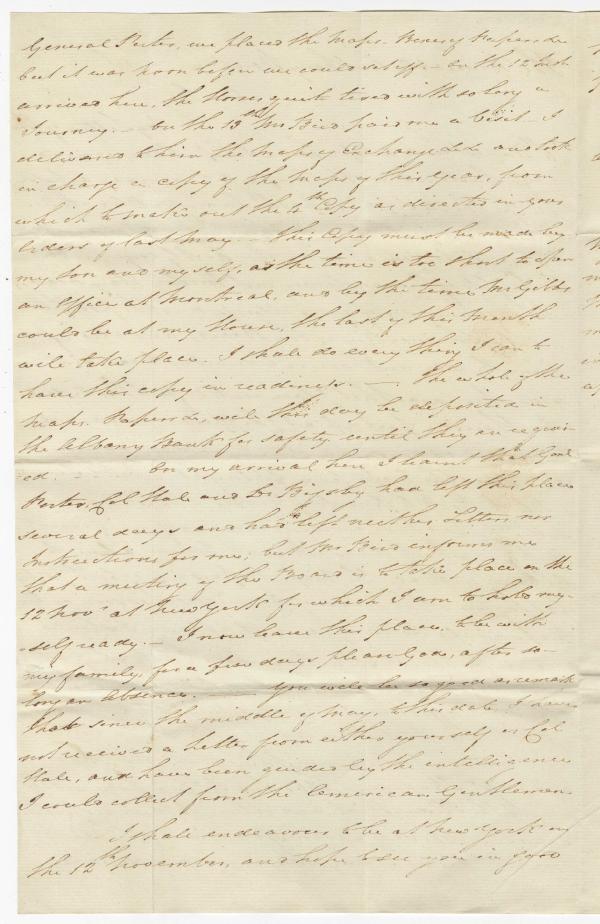 General Porter, we placed the Maps. Boxes of Papers &c
but it was noon before we could set off — on the 12 Inst
arrived here, the Horses quite tired with so long a
Journey. — On the 13th Mr Bird paid me a Visit I
delivered to him the Maps of Exchange &c &c and took
in charge a copy of the Maps of this Year, from
which to make out the 4th Copy as directed in your
Orders of last May. — This Copy must be made by
my Son and myself, as the time is too short to open
an Office at Montreal, and by the time Mr Gibbs
could be at my House, the last of this Month
will take place. I shall do every thing I can to
have this copy in readiness. —. The whole of the
Maps. Papers &c, will this day be deposited in
the Albany Bank for safety until they are requir
ed. — On my arrival here I learnt that Genl
Porter, Col Hale and Dr Bigsby had left this place
several days and had left neither Letters nor
Instructions for me; but Mr Bird informs me
that a meeting of the Board is to take place on the
12 Novr at New York for which I am to hold my-
-self ready. — I now leave this place, to be with
my family, for a few days please God, after so
long an Absence. — You will be so good as remark
that since the middle of May, to this date I have
not received a Letter from either yourself or Col
Hale, and have been guided by the intelligence
I could collect from the American Gentlemen.
I shall endeavour to be at New York on
the 12th November, and hope to see you in good